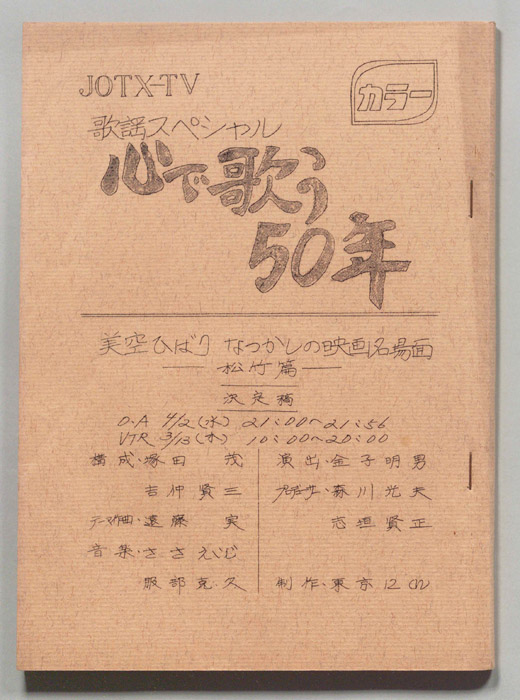 JOTX-TV
カラー
歌謡スペシャル
心で歌う
50年
美空ひばり なつかしの映画名場面
── 松竹篇 ──
決定稿
O.A 4/2(水) 21:00~21:56
VTR 3/13(木) 10:00~20:00
構成・塚田 茂
吉仲賢三
テーマ作曲・遠藤 実
音楽・ささえいじ
服部克久
演出・金子明男
プロデューサー・森川光夫
志垣賢正
制作・東京12ch